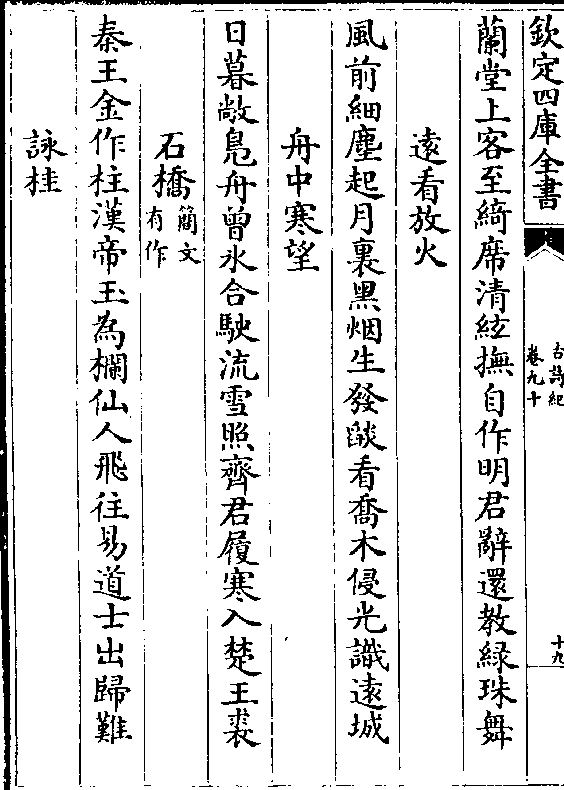 欽定四庫全書
古詩紀
卷九十
十九
蘭堂上客至綺席清絃撫自作明君辭還教緑珠舞
遠看放火
風前細塵起月裏黑烟生發燄看喬木侵光識遠城
舟中寒望
日暮敞鳬舟曾氷合駛流雪照齊君履寒入楚王裘
石橋簡文有作
秦王金作柱漢帝玉為欄仙人飛往易道士出歸難
詠桂